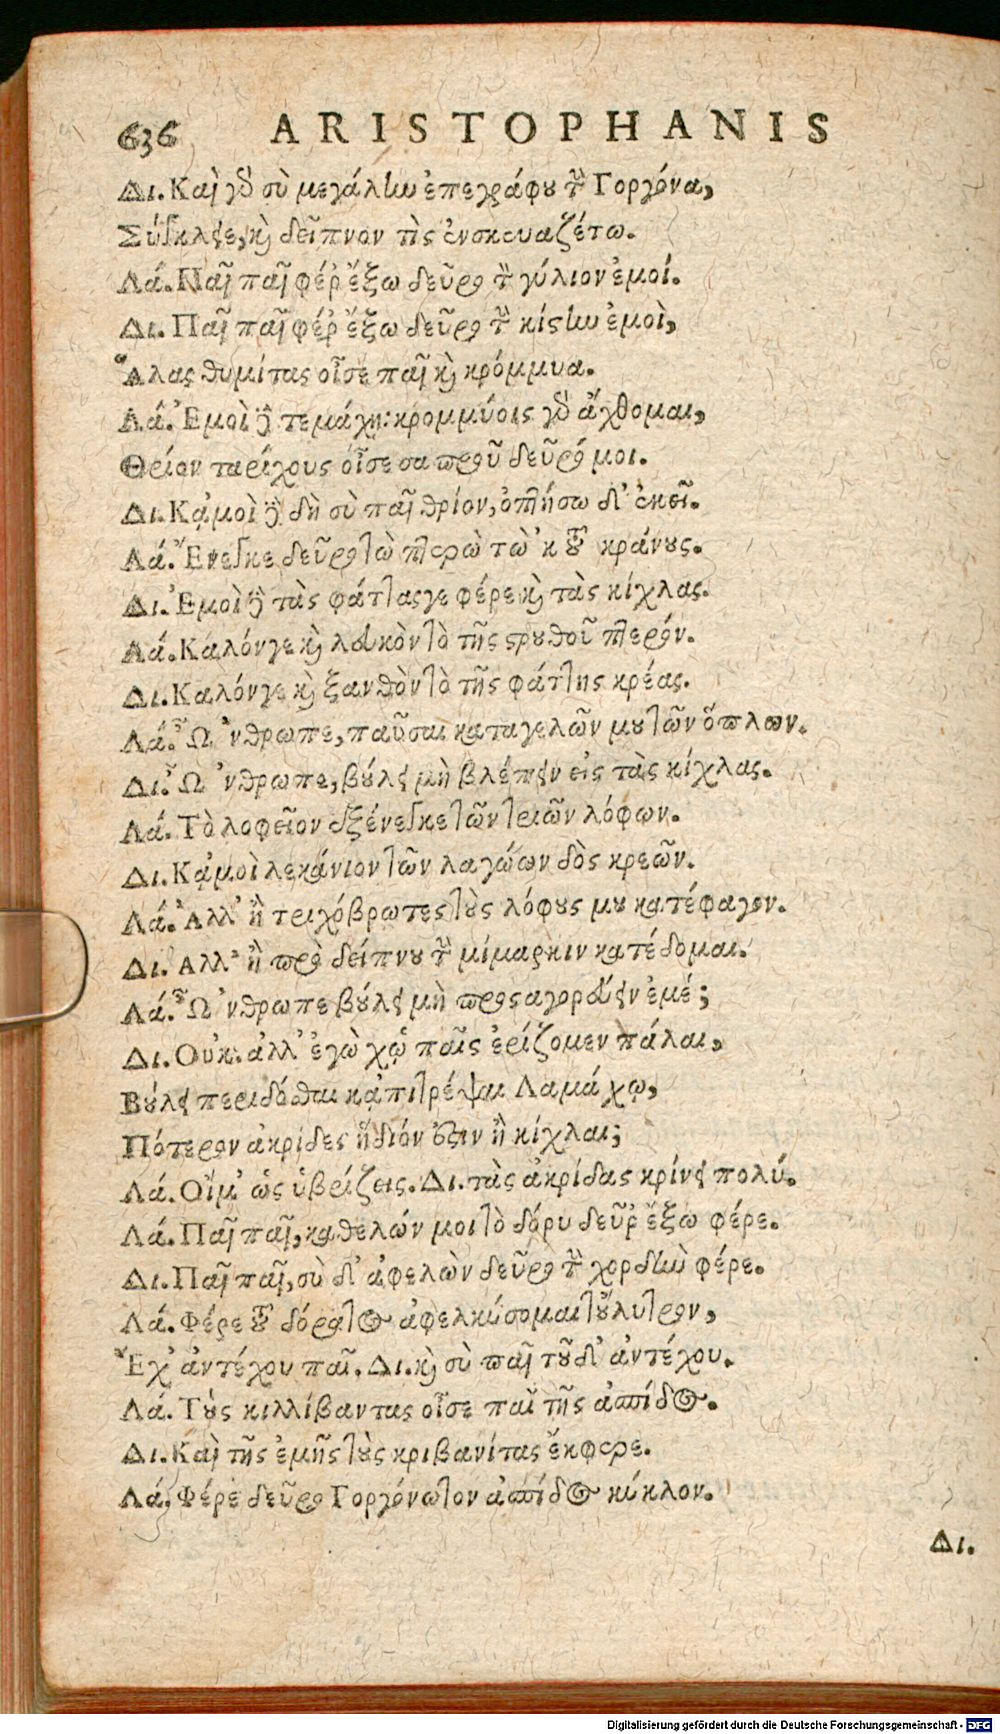 636 ARISTOPHANIS
Δι. Καὶ γὸ σὺ μεγάλην ἐπεγράφου τὴν Γοργόνα,
Σύγκλειε, καὶ δεῖπνον τὶς ἐνσκευαζέτω.
Λά. Παῖ παῖ φέρ' ἔξω δεῦρο τὸν γύλιον ἐμοί.
Δι. Παῖ παῖ φέρ' ἔξω δεῦρο τὴν κίστην ἐμοὶ,
Ἅλας θυμίτας οἶσε παῖ καὶ κρόμμυα.
Λά. Ἐμοὶ δὲ τεμάχη: κρομμύοις γὸ ἄχθομαι,
Θρίον ταρίχους οἶσε σαπροῦ δεῦρό μοι.
Δι. Κᾀμοὶ δὲ δὴ σὺ παῖ θρίον, ὀπτήσω δ' ἐκεῖ.
Λά. Ἔνεγκε δεῦρο τὼ πτερὼ τὼ 'κ τοῦ κράνους.
Δι. Ἐμοὶ δὲ τὰς φάττας γε φέρε καὶ τὰς κίχλας.
Λά. Καλόνγε καὶ λευκὸν τὸ τῆς στρουθοῦ πτερόν.
Δι. Καλόνγε καὶ ξανθὸν τὸ τῆς φάττης κρέας.
Λά. Ὦ 'νθρωπε, παῦσαι καταγελῶν μου τῶν ὅπλων.
Δι. Ὦ 'νθρωπε, βούλει μὴ βλέπειν εἰς τὰς κίχλας.
Λά. Τὸ λοφεῖον ἐξένεγκε τῶν τριῶν λόφων.
Δι. Κᾀμοὶ λεκάνιον τῶν λαγώων δὸς κρεῶν.
Λά. Ἀλλ' ἢ τριχόβρωτες τοὺς λόφους μου κατέφαγον.
Δι. Αλλ' ἢ πρὸ δείπνου τὴν μίμαρκιν κατέδομαι.
Λά. Ὦ 'νθρωπε βούλει μὴ προσαγορεύειν ἐμέ;
Δι. Οὐκ. ἀλλ' ἐγὼ χᾦ παῖς ἐρίζομεν πάλαι,
Βούλει περιδόσθαι κᾀπιτρέψαι Λαμάχῳ,
Πότερον ἀκρίδες ἥδιόν ἐστιν ἢ κίχλαι;
Λά. Οἴμ' ὡς ὑβρίζεις. Δι. τὰς ἀκρίδας κρίνει πολύ.
Λά. Παῖ παῖ, καθελών μοι τὸ δόρυ δεῦρ' ἔξω φέρε.
Δι. Παῖ παῖ, σὺ δ' ἀφελὼν δεῦρο τὴν χορδὴν φέρε.
Λά. Φέρε τοῦ δόρατος ἀφελκύσομαι τοὔλυτρον,
Ἔχ' ἀντέχου παῖ. Δι. καὶ σὺ παῖ τοῦδ' ἀντέχου.
Λά. Τοὺς κιλλίβαντας οἶσε παῖ τῆς ἀσπίδος.
Δι. Καὶ τῆς ἐμῆς τοὺς κριβανίτας ἔκφερε.
Λά. Φέρε δεῦρο Γοργόνωτον ἀσπίδος κύκλον.
Δι.
Digitalisierung gefördert durch die Deutsche Forschungsgemeinschaft - DFG